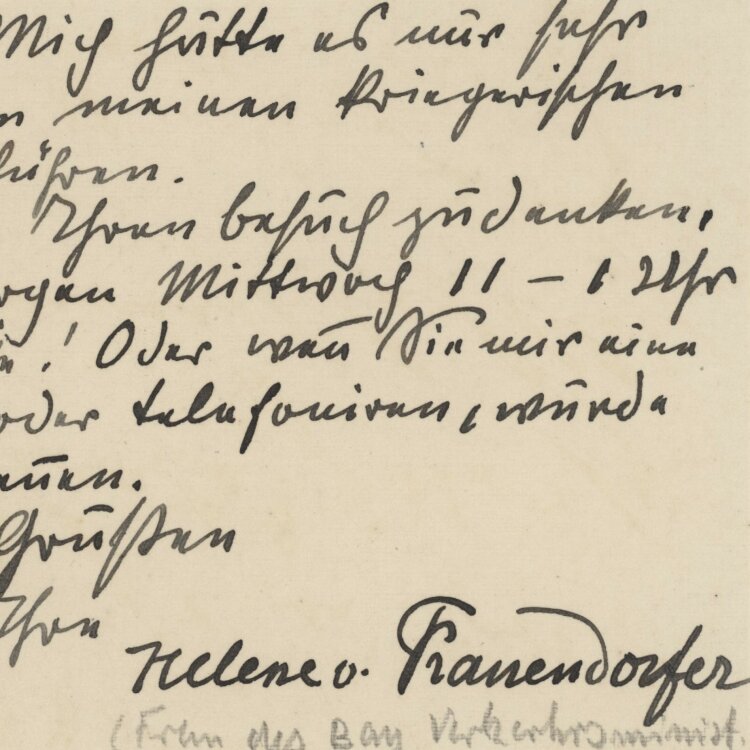 Mich hätte es nur sehr
meinen kriegerischen
führen.
Ihren besuch zu danken,
Mittwoch 11 – 1 Uhr
! Oder wen̄ Sie mir eine
oder telefoniren, würde
Grüßen
Ihre
Helene v. Frauendorfer
(Frau des Bay Verkehrsminist.